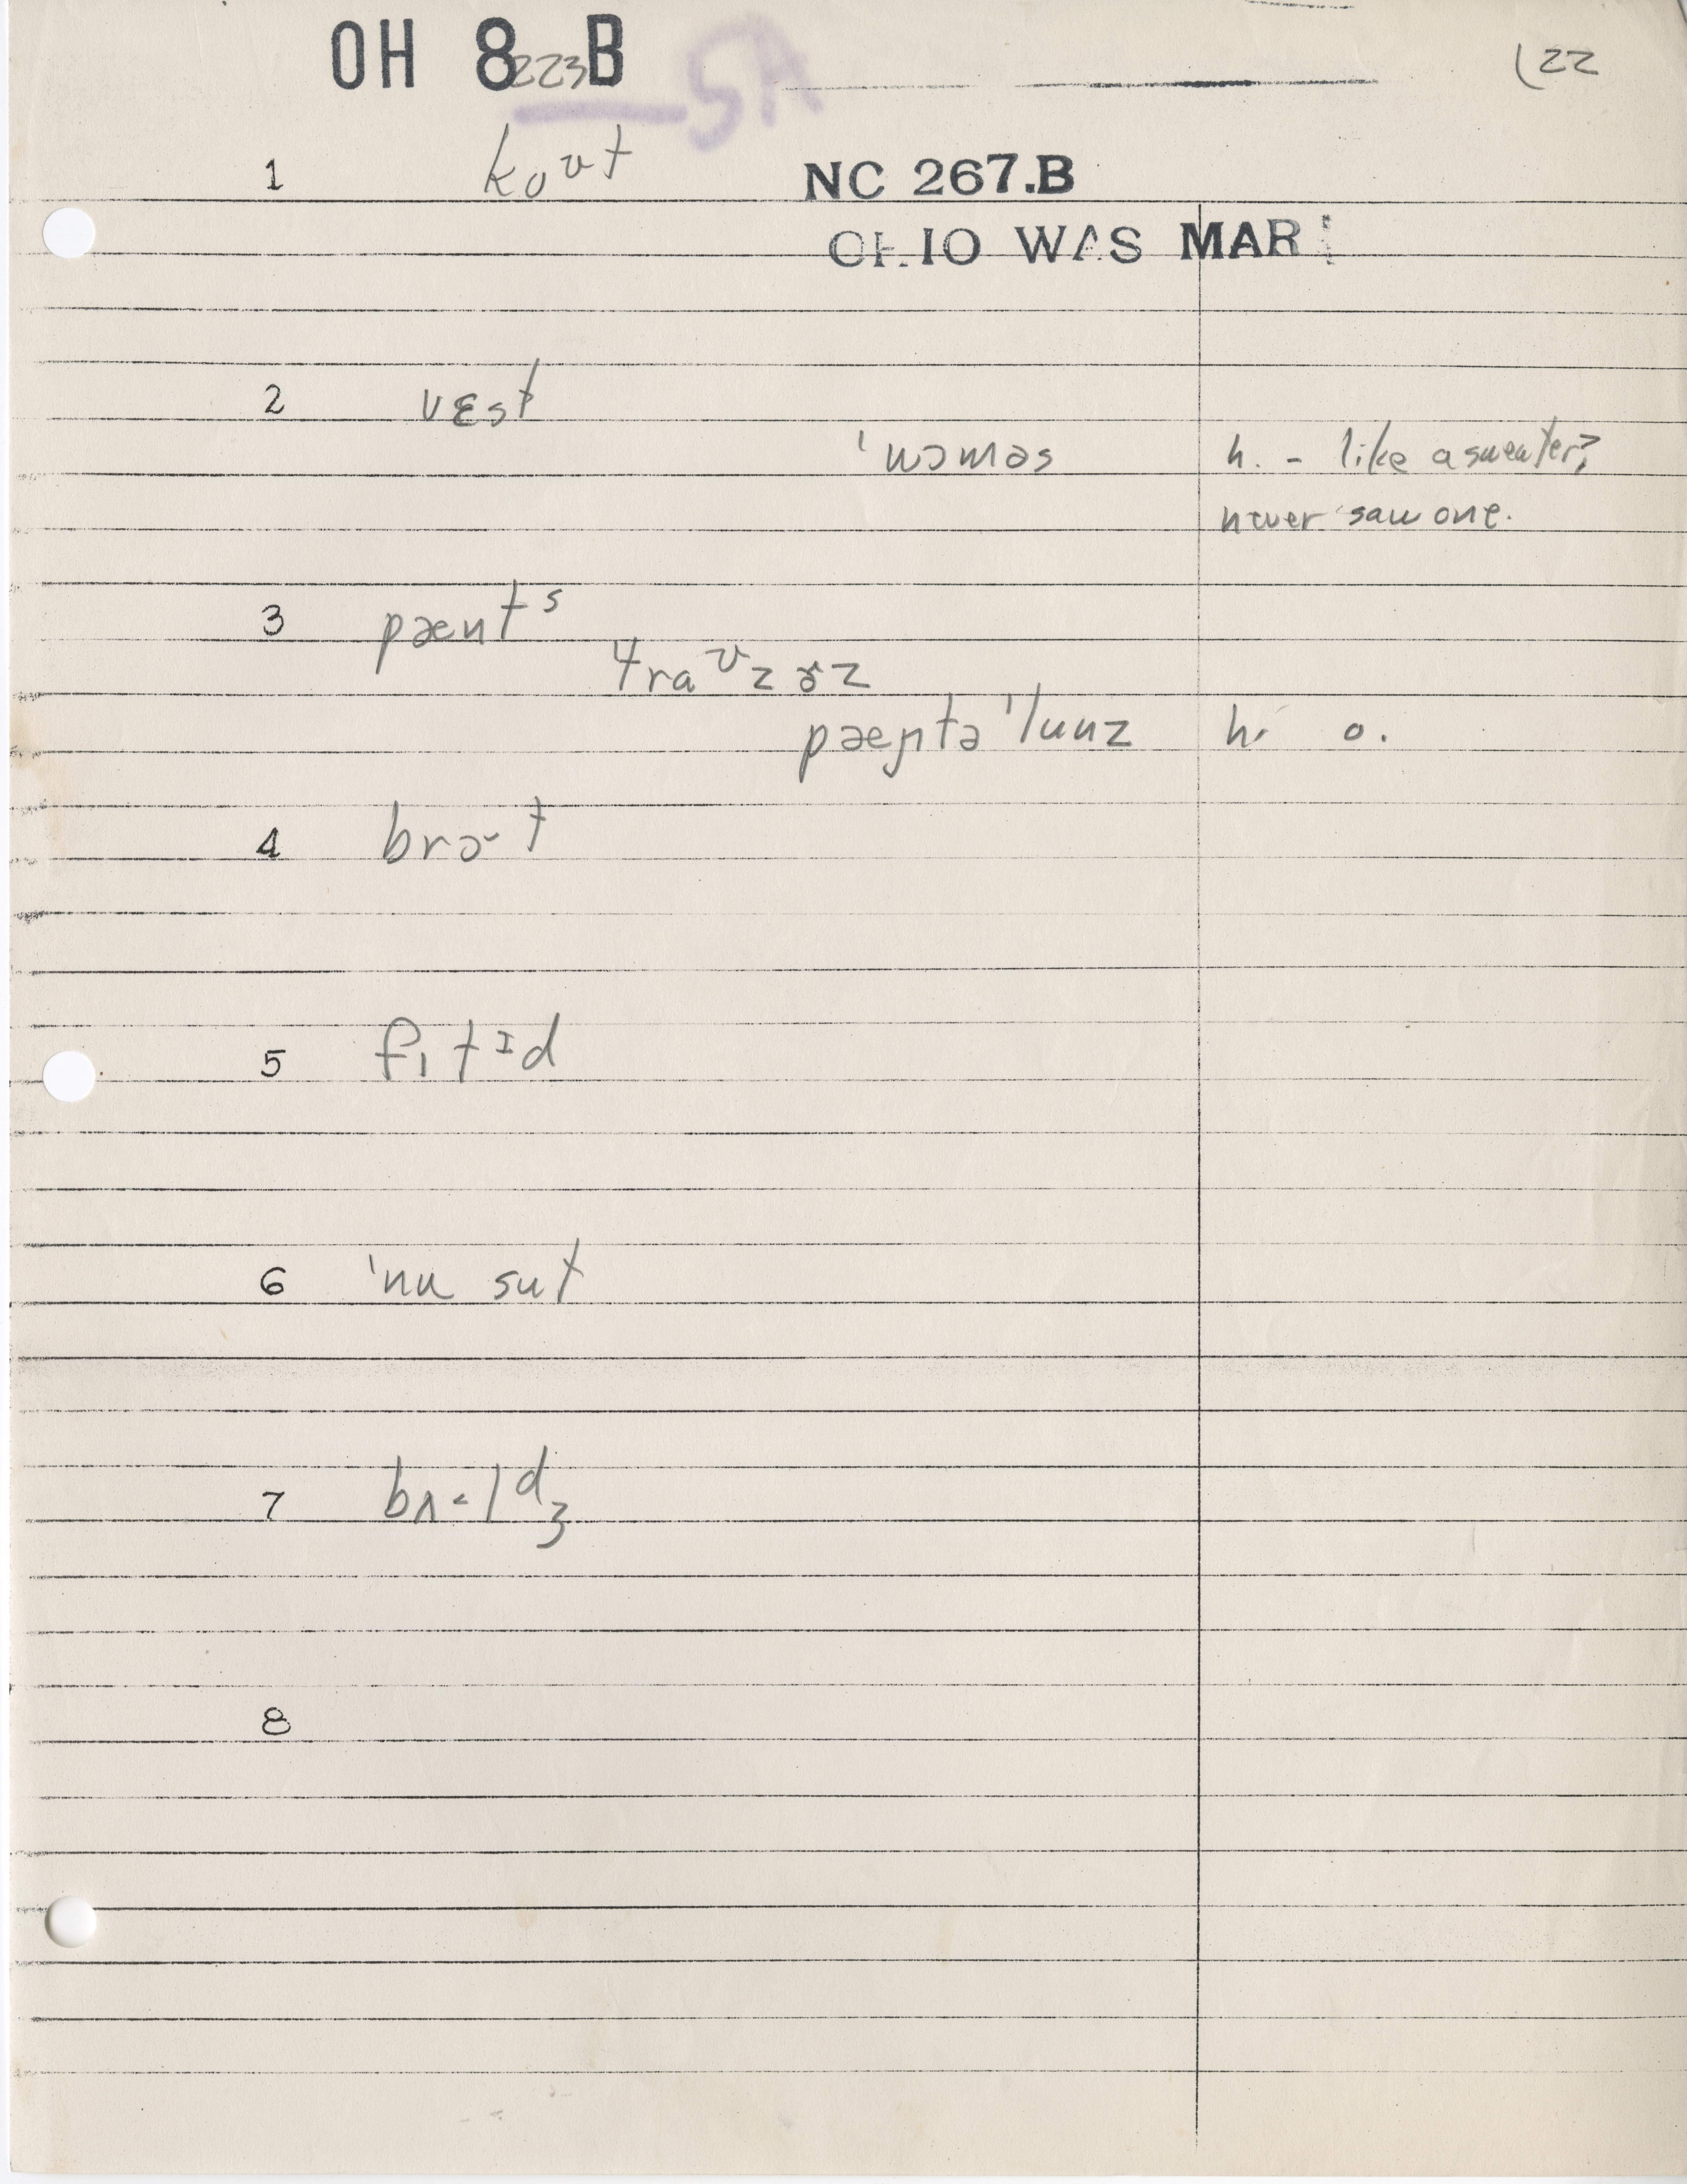 OH 8 B
223
5A
(22
1 koʊt NC 267.B
OHIO WAS MAR
2 vɛst
ˈwɔməs h. - like a sweater?
never saw one.
3 pæents
traʊzɚz
pæentəˈluunz h. o.
4 brɔ˞t
5 fɪtɪd
6 ˈnu sut
7 bʌ·ldʒ
8